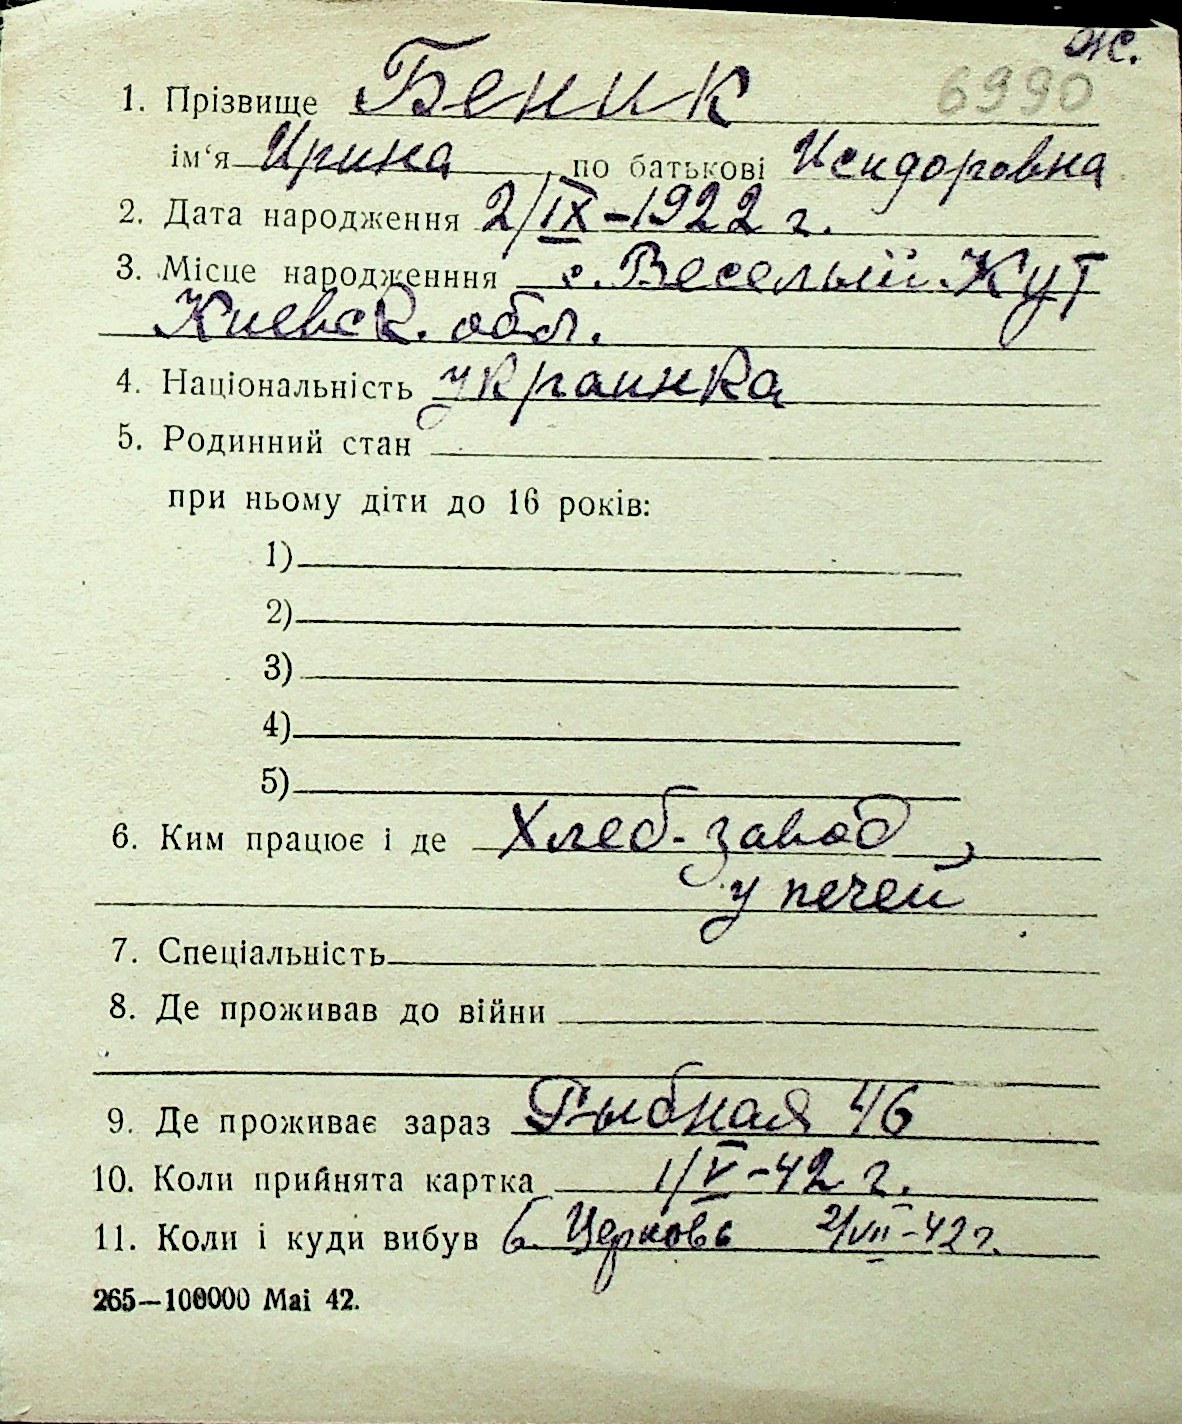 Ж.
6990
1. Прізвище Беник
ім‘я Ирина по батькові Исидоровна
2. Дата народження 2/IX-1922 г.
3. Місце народженння с. Веселый Кут
Киевск. обл.
4. Національність украинка
5. Родинний стан
при ньому діти до 16 років:
1)
2)
3)
4)
5)
6. Ким працює і де Хлеб-завод,
у печей
7. Спеціальність
8. Де проживав до війни
9. Де проживає зараз Рыбная 46
10. Коли прийнята картка 1/V-42 г.
11. Коли і куди вибув б. Церковь 2/VII-42 г.
265—100000 Mai 42.